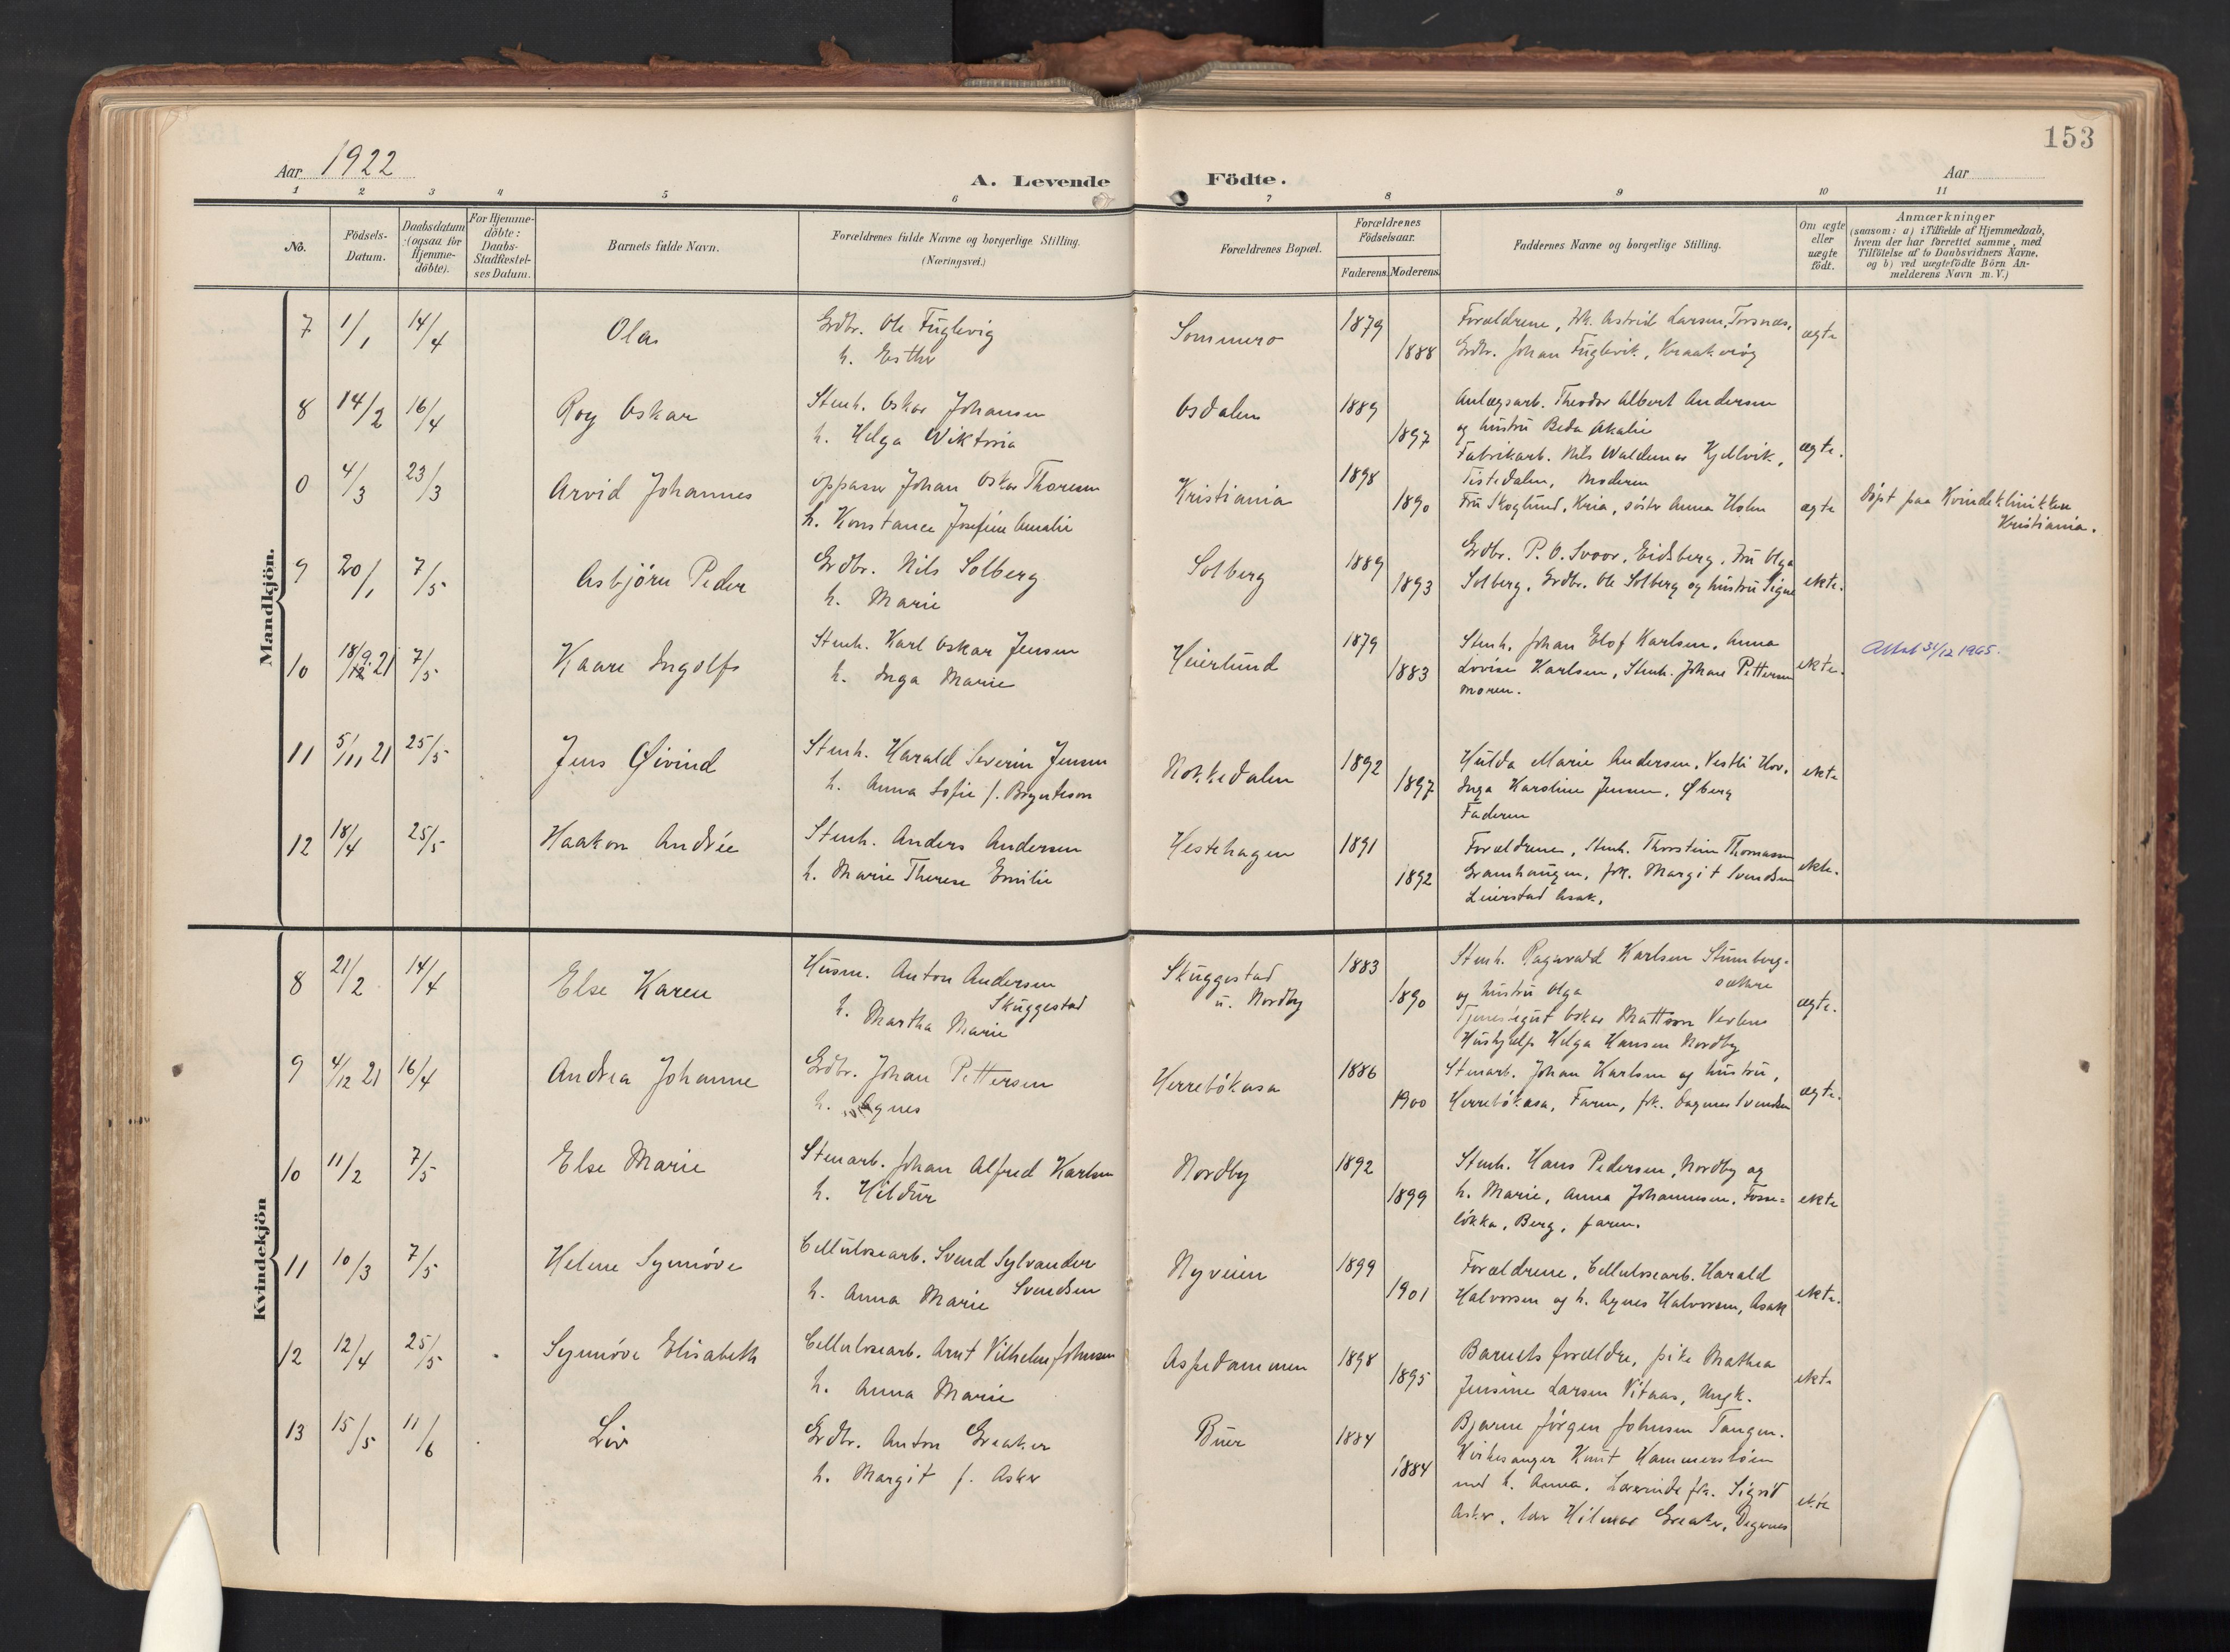 153
Aar 1922
A. Levende Födte.
Aar
1 2 3 4 5 6 7 8 9 10 11
No.
Födsels-Datum.
Daabsdatum (ogsaa for Hjemme-döbte).
For Hjemme-döbte: Daabs-Stadfæstel-ses Datum.
Barnets fulde Navn.
Forældrenes fulde Navne og borgerlige Stilling. (Næringsvei.)
Forældrenes Bopæl.
Forældrenes Födselsaar.
Faderens. Moderens.
Faddernes Navne og borgerlige Stilling.
Om ægte eller uægte födt.
Anmærkninger (saasom: a) i Tilfælde af Hjemmedaab, hvem der har forrettet samme, med Tilföielse af to Daabsvidners Navne, og b) ved uægtefödte Börn An-melderens Navn m. V.)
Mandkjön.
7 1/1 14/4 Ola Grdbr. Ole Fuglevig Sommero 1879 Forældrene, Frk. Astrid Larsen, Torsnæs, ægte
h. Esther 1888 Grdbr. Johan Fuglevik, Kraakerøy
8 14/2 16/4 Roy Oskar Stenh. Oskar Johansen Osdalen 1889 Anlægsarb. Theodor Albert Andersen
h. Helga Wiktoria 1897 og hustru Beda Akalie
Fabrikarb. Nils Waldemar Kjellvik, ægte.
Tistedalen, Moderen
0 4/3 23/3 Arvid Johannes oppasser Johan Oskar Thoresen Kristiania 1898
h. Konstance Josefine Amalie 1890 Fru Skoglund, Kria, søster Anna Holm ægte Døpt paa Kvindeklinikken
Kristiania.
9 20/1 7/5 Asbjörn Peder Grdbr. Nils Solberg Solberg 1889 Grdbr. P. O. Svoor, Eidsberg, Fru Olga
h. Marie 1893 Solberg, Grdbr. Ole Solberg og hustru Signe ekte.
10 18/9 21 7/5 Kaare Ingolf Stenh. Karl Oskar Jensen Heierlund 1879 Stenh. Johan Elof Karlsen, Anna Attest 31/12 1965.
h. Inga Marie 1883 Lovise Karlsen, Stenh. Johan Pettersen ekte.
moren.
11 5/11 21 25/5 Jens Øivind Stenh. Harald Severin Jensen Nokkedalen 1892 Hulda Marie Andersen, Vestli Hov. ekte
h. Anna Sofie f. Brynteson 1897 Inga Karoline Jensen, Øberg
Faderen
12 18/4 25/5 Haakon Andrée Stenh. Anders Andersen Hestehagen 1891 Forældrene, Stenh. Thorstein Thomassen
h. Marie Therese Emilie 1892 Gramhaugen, frk. Margit Svendsen ekte.
Leierstad Asak.
Kvindekjön
8 21/2 14/4 Else Karen Husm. Anton Andersen Skuggestad 1883 Stenh. Ragnvald Karlsen Stumberg-
Skuggestad u. Nordby sætre
h. Martha Marie 1890 og hustru Olga ægte.
Tjenesgut Oskar Mattson Verlens
Hushjelp Helga Hansen Nordby
9 4/12 21 16/4 Andrea Johanne Grdbr. Johan Pettersen Herrebökasa 1886 Stenarb. Johan Karlsen og hustru,
h. Agnes 1900 Herrebökasa, Faren, frk. Dagmar Svendsen ægte.
10 11/2 7/5 Else Marie Stenarb. Johan Alfred Karlsen Nordby 1892 Stenh. Hans Pedersen, Nordby og
h. Hildur 1899 h. Marie, Anna Johannesen, Fosse= ekte
lökka, Berg, faren.
11 10/3 7/5 Helene Synnöve Cellulosearb. Svend Sylvander Nyveien 1899 Forældrene, Cellulosearb. Harald
Svendsen
h. Anna Marie 1901 Halvorsen og h. Agnes Halvorsen, Asak ekte.
12 12/4 25/5 Synnöve Elisabeth Cellulosearb. Arnt Vilhelm Johnsen Aspedammen 1898 Barnets forældre, pike Mathea
h. Anna Marie 1895 Jensine Larsen Vitaas, Ungk. ekte
Bjarne Jörgen Johnsen Tangen.
13 15/5 11/6 Liv Grdbr. Anton Greaker Buer 1884
h. Margit f. Asker 1884 Kirkesanger Knut Hammerstöen
med h. Anna. Lærerinde frk. Sigrid
Asker, lær Hilmar Greaker, Degernes ekte